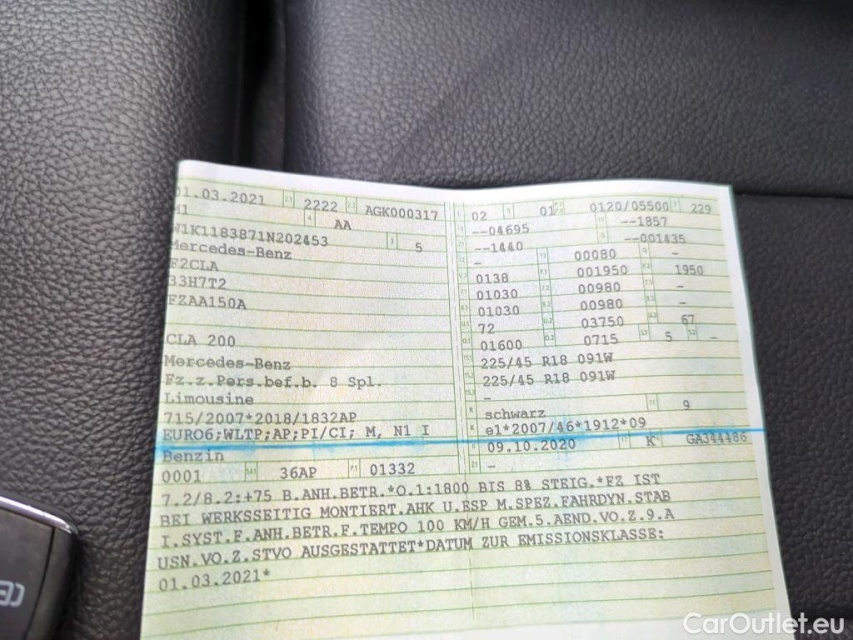 01.03.2021 2222 AGK000317
M1 AA
W1K1183871N202453 5
Mercedes-Benz
F2CLA
33H7T2
FZAA150A
CLA 200
Mercedes-Benz
Fz.z.Pers.bef.b. 8 Spl.
Limousine
715/2007*2018/1832AP
EURO6;WLTP;AP;PI/CI; M, N1 I
Benzin
0001 36AP 01332
02 01 0120/05500 229
--04695 --1857
--1440 --001435
- 00080 -
0138 001950 1950
01030 00980 -
01030 00980 -
72 03750 67
01600 0715 5 -
225/45 R18 091W
225/45 R18 091W
-
schwarz 9
e1*2007/46*1912*09
09.10.2020 K GA344486
-
7.2/8.2:+75 B.ANH.BETR.*O.1:1800 BIS 8% STEIG.*FZ IST
BEI WERKSSEITIG MONTIERT.AHK U.ESP M.SPEZ.FAHRDYN.STAB
I.SYST.F.ANH.BETR.F.TEMPO 100 KM/H GEM.5.AEND.VO.Z.9.A
USN.VO.Z.STVO AUSGESTATTET*DATUM ZUR EMISSIONSKLASSE:
01.03.2021*
CarOutlet.eu